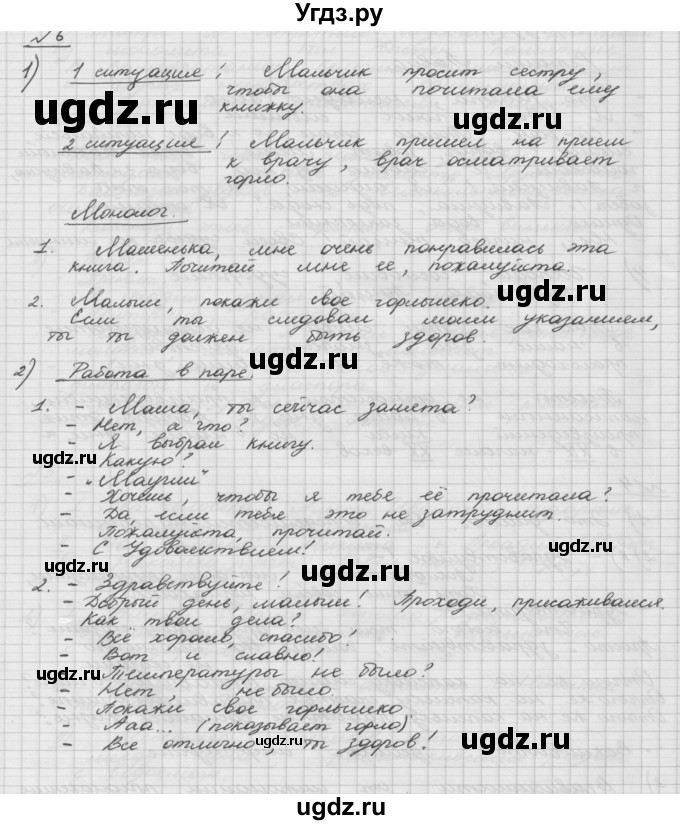 Угдз.ру
№ 6
1) 1 ситуация: Мальчик просит сестру,
чтобы она почитала ему
книжку.
ugdz.ru ugdz.ru
2 ситуация: Мальчик пришел на прием
к врачу, врач осматривает
горло.
Монолог.
1. Машенька, мне очень понравилась эта
книга. Почитай мне ее, пожалуйста.
ugdz.ru
2. Малыш, покажи свое горлышко.
Если ты следовал моим указанием,
то ты должен быть здоров.
ugdz.ru
2) Работа в паре.
1. - Маша, ты сейчас занята?
- Нет, а что?
- Я выбрал книгу.
ugdz.ru
- Какую?
- "Маугли"
- Хочешь, чтобы я тебе её прочитала?
- Да, если тебя это не затруднит.
- Пожалуйста, прочитай.
- С удовольствием!
ugdz.ru
ugdz.ru
2. - Здравствуйте!
- Добрый день, малыш! Проходи, присаживайся.
Как твои дела?
- Всё хорошо, спасибо!
ugdz.ru
- Вот и славно!
- Температуры не было?
ugdz.ru
- Нет, не было.
- Покажи свое горлышко
- Ааа... (показывает горло)
ugdz.ru ugdz.ru
- Все отлично, ты здоров!
ugdz.ru